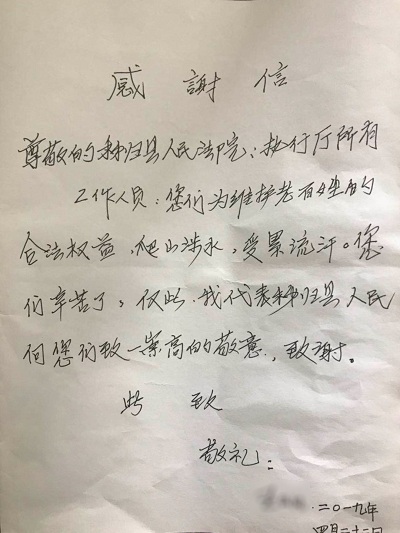 感謝信
尊敬的秭归县人民法院:执行厅所有
工作人员:您们为维护老百姓的
合法权益,爬山涉水,受累流汗。您
们辛苦了,仅此,我代表秭归县人民
向您们致一崇高的敬意,致谢。
此致
敬礼:
二〇一九年
四月二十二日